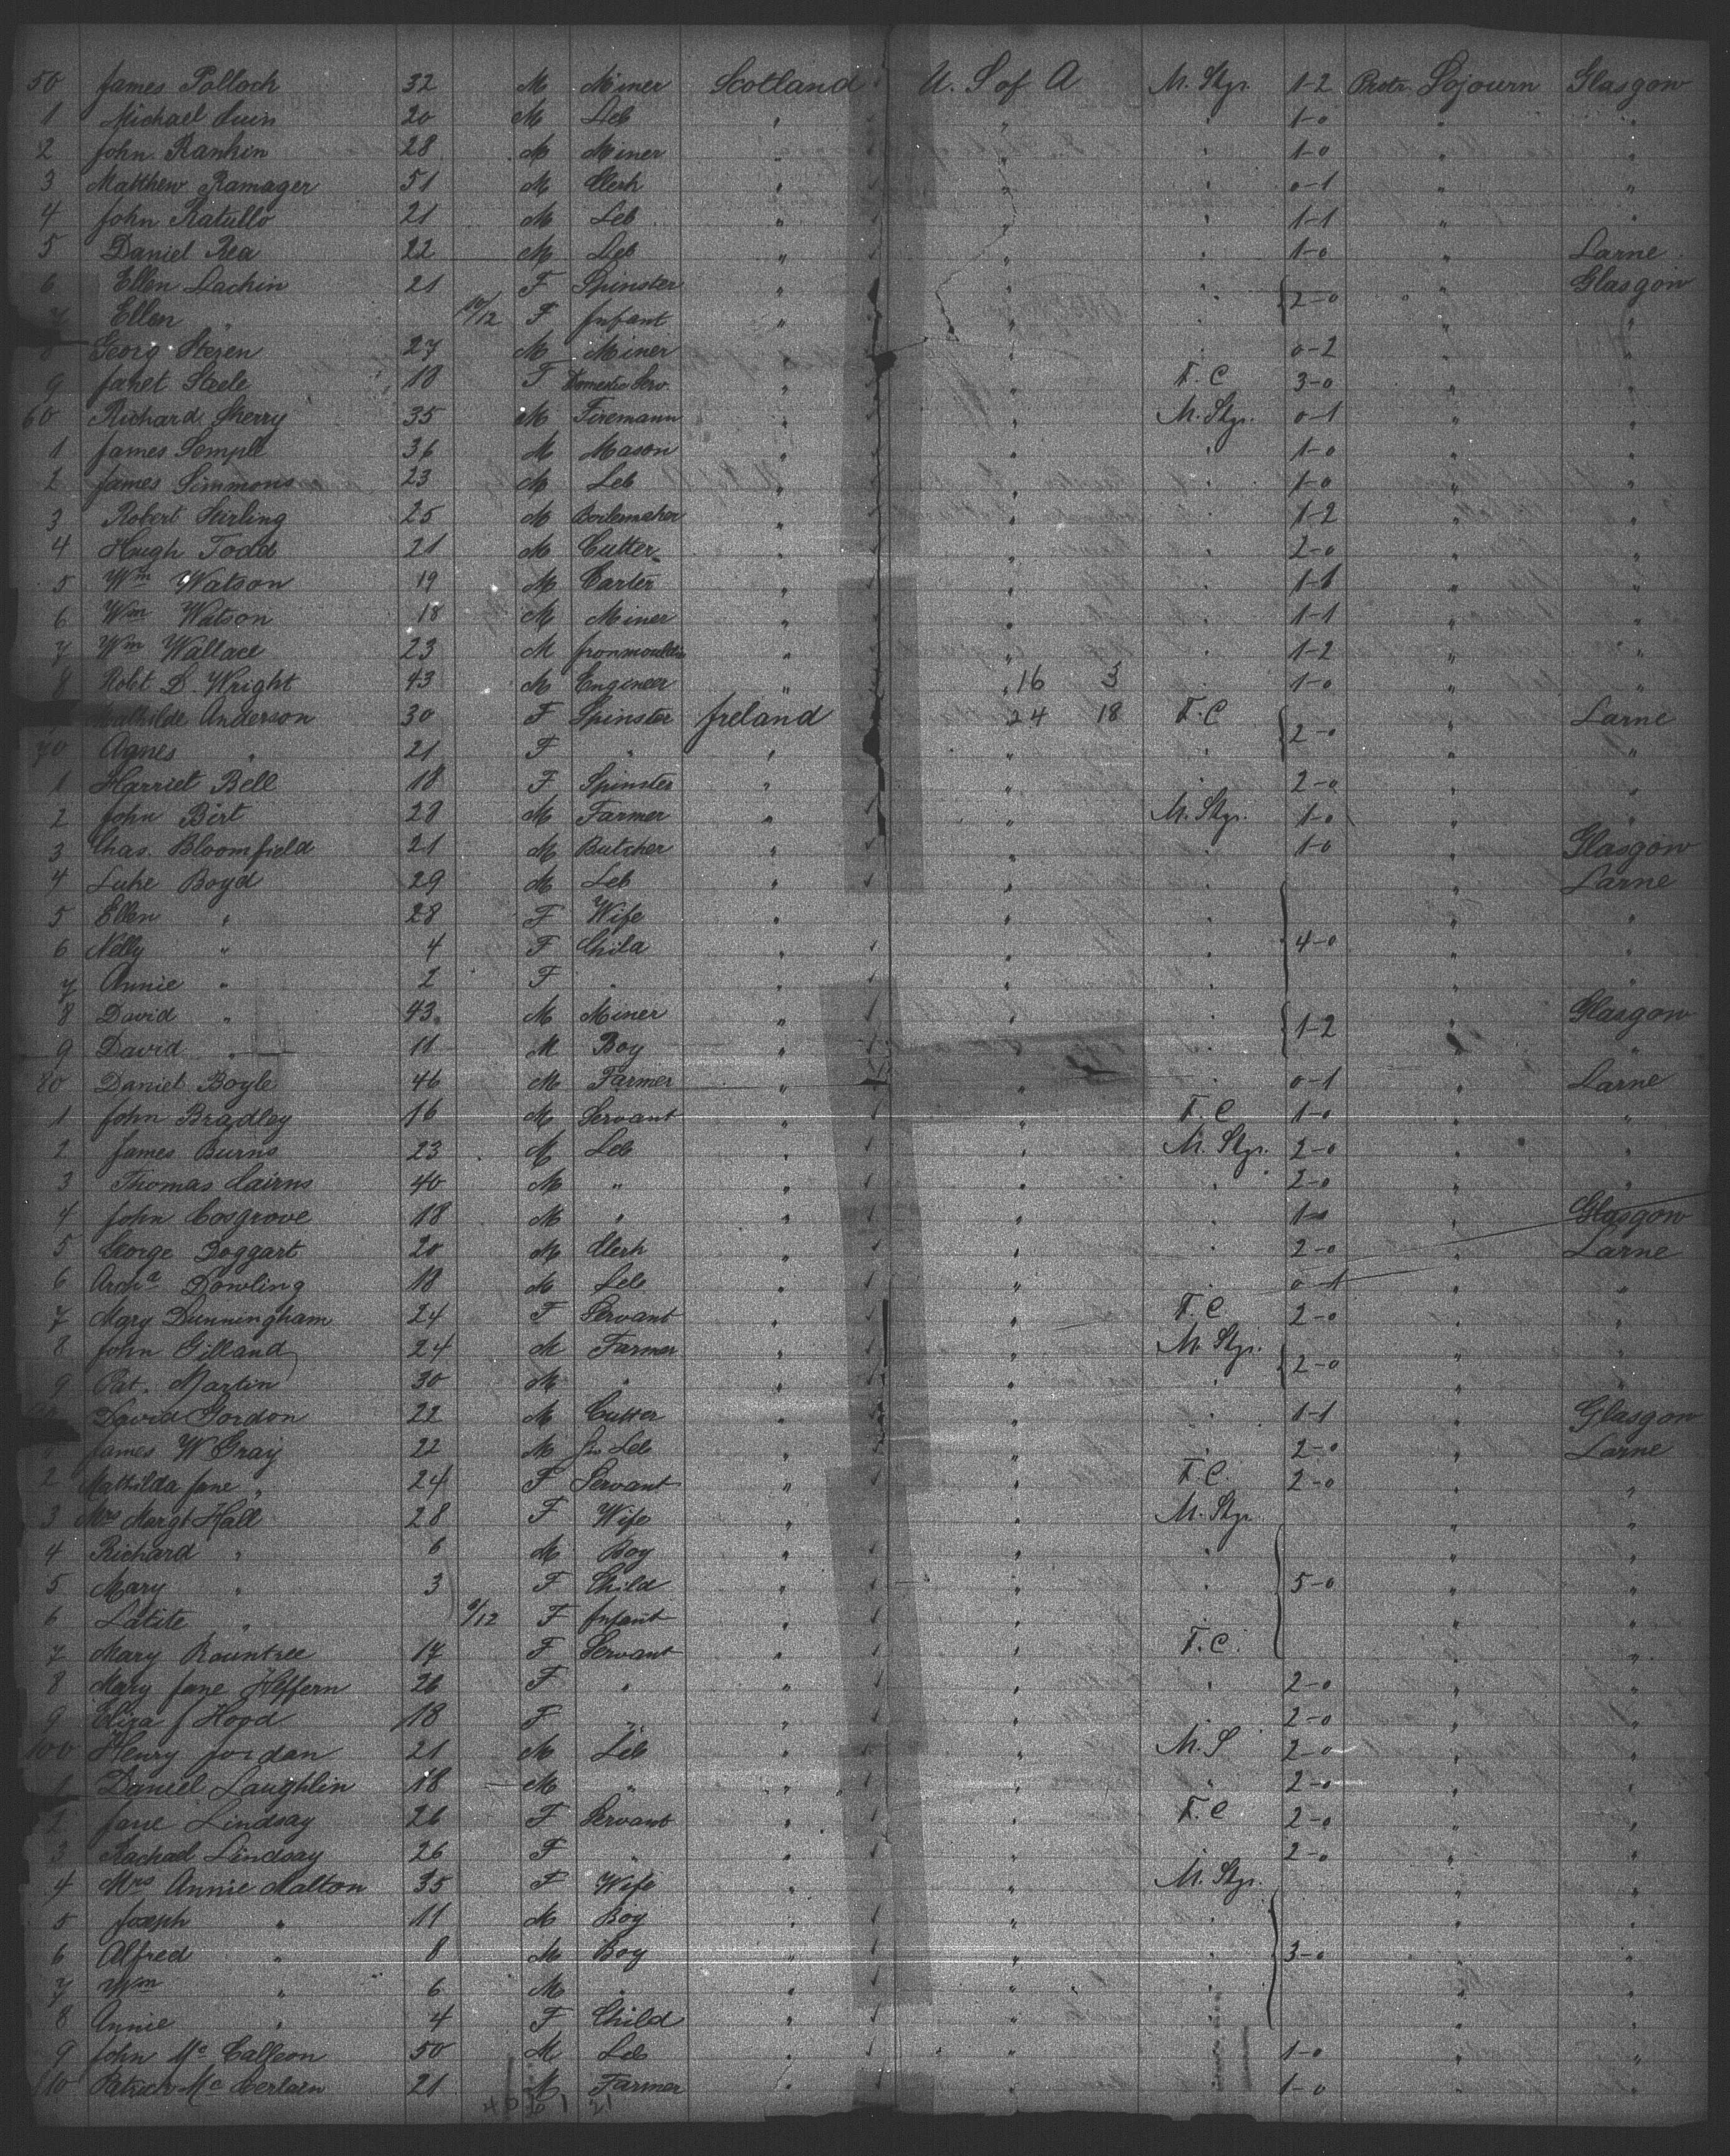 50 James Polloch 32 M Miner Scotland U. S of A M. Stgr. 1-2 Protr. Sojourn Glasgow
1 Michael 20 M Leb " " " 1-0 " "
2 John Rankin 28 M Miner " " " 1-0 " "
3 Matthew Ramager 51 M Clerk " " " 0-1 " "
4 John Ratullo 21 M Leb " " " 1-1 " "
5 Daniel Rea 22 M Leb " " " 1-0 " Larne
6 Ellen Lachin 21 F Spinster " " " 2-0 " Glasgow
7 Ellen " 10/12 F Infant " " " " "
8 Georg Steren 27 M Miner " " " 0-2 " "
9 Janet Steele 18 F Domestic Serv. " " F. C 3-0 " "
60 Richard Sherry 35 M Firemann " " M. Stgr. 0-1 " "
1 James Semple 36 M Mason " " " 1-0 " "
2 James Simmons 23 M Leb " " " 1-0 " "
3 Robert Stirling 25 M Boilemaker " " " 1-2 " "
4 Hugh Todd 21 M Cutter " " " 2-0 " "
5 Wm Watson 19 M Carter " " " 1-1 " "
6 Wm Watson 18 M Miner " " " 1-1 " "
7 Wm Wallace 23 M Ironmoulder " " " 1-2 " "
8 Robt D. Wright 43 M Engineer " " 16 3 " 1-0 " "
Mathilde Anderson 30 F Spinster Ireland 24 18 F. C 2-0 " Larne
70 Agnes " 21 F " " " " " "
1 Harriet Bell 18 F Spinster " " " 2-0 " "
2 John Birt 28 M Farmer " " M. Stgr. 1-0 " "
3 Chas. Bloomfield 21 M Butcher " " " 1-0 " Glasgow
4 Luke Boyd 29 M Leb " " " " Larne
5 Ellen " 28 F Wife " " " " "
6 Nelly " 4 F Child " " " 4-0 " "
7 Annie " 2 F " " " " " "
8 David " 43 M Miner " " " 1-2 " Glasgow
9 David " 11 M Boy " " " " "
80 Daniel Boyle 46 M Farmer " " " 0-1 " Larne
1 John Bradley 16 M Servant " " F. C 1-0 " "
2 James Burns 23 M Leb " " M. Stgr. 2-0 " "
3 Thomas Cairns 40 M " " " " 2-0 " "
4 John Cosgrove 18 M " " " " 1-0 " Glasgow
5 George Doggart 20 M Clerk " " " 2-0 " Larne
6 Archd Dowling 18 M Leb " " " 0-1 " "
7 Mary Dunningham 24 F Servant " " F. C 2-0 " "
8 John Gilland 24 M Farmer " " M. Stgr. 2-0 " "
9 Pat. Martin 30 M " " " " " "
David Gordon 22 M Cutter " " " 1-1 " Glasgow
1 James W Gray 22 M Leb " " " 2-0 " Larne
2 Mathilda Jane " 24 F Servant " " F. C. 2-0 " "
3 Mrs Margt Hall 28 F Wife " " M. Stgr. " "
4 Richard " 6 M Boy " " " " "
5 Mary " 3 F Child " " " 5-0 " "
6 " 9/12 F Infant " " " " "
7 Mary Rountree 17 F Servant " " F. C. " "
8 Mary Jane Heffern 26 F " " " " 2-0 " "
9 Eliza J Hood 18 F " " " " 2-0 " "
100 Henry Jordan 21 M Leb " " M. S 2-0 " "
1 Daniel Laughlin 18 M " " " " 2-0 " "
2 Jane Lindsay 26 F Servant " " F. C 2-0 " "
3 Rachael Lindsay 26 F " " " " 2-0 " "
4 Mrs Annie Malton 35 F Wife " " M. Stgr. " "
5 Joseph " 11 M Boy " " " " "
6 Alfred " 8 M Boy " " " 3-0 " "
7 Wm " 6 M " " " " " "
8 Annie " 4 F Child " " " " "
9 John Mc Calleon 50 M Leb " " " 1-0 " "
110 Patrick Mc Cerlain 21 M Farmer " " " 1-0 " "
21